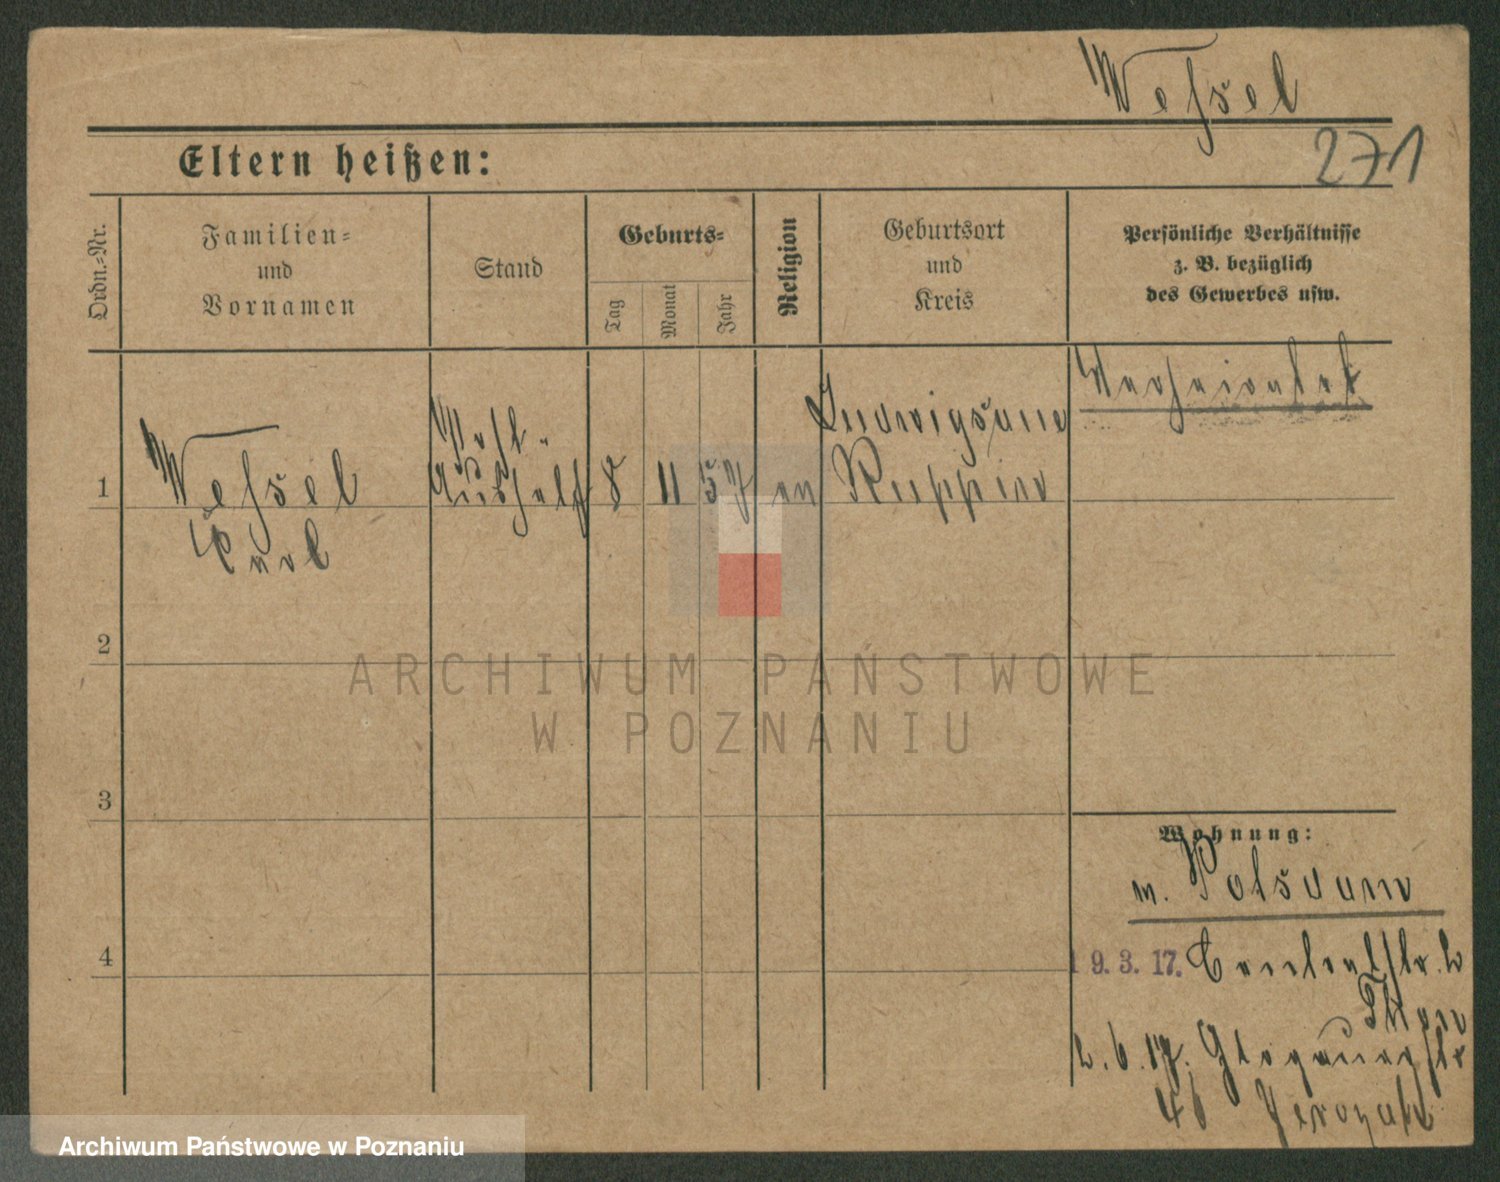 Wessel
271
Eltern heißen:
Ordn.-Nr.
Familien-
und
Vornamen
Stand
Geburts-
Tag
Monat
Jahr
Religion
Geburtsort
und
Kreis
Persönliche Verhältnisse
z. B. bezüglich
des Gewerbes usw.
1
Wessel
Carl
Post-
Aushelf
8
11
57
ev
Ludwigsaue
Ruppin
Verheiratet
2
3
4
Wohnung:
v. Potsdam
19.3.17. Cranachstr. 2
2.6.17. Glogauerstr
46
ARCHIWUM PAŃSTWOWE
W POZNANIU
Archiwum Państwowe w Poznaniu